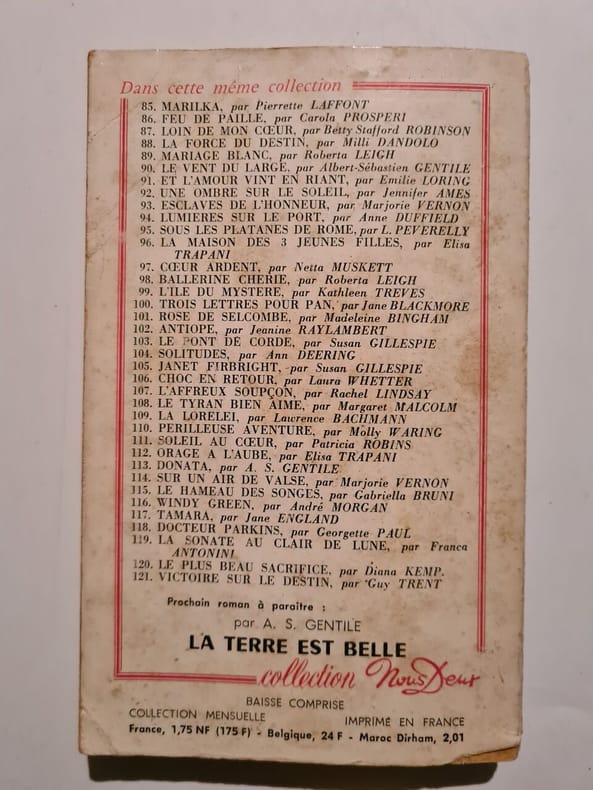 Dans cette même collection
85. MARILKA, par Pierrette LAFFONT
86. FEU DE PAILLE, par Carola PROSPERI
87. LOIN DE MON CŒUR, par Betty Stafford ROBINSON
88. LA FORCE DU DESTIN, par Milli DANDOLO
89. MARIAGE BLANC, par Roberta LEIGH
90. LE VENT DU LARGE, par Albert-Sébastien GENTILE
91. ET L'AMOUR VINT EN RIANT, par Emilie LORING
92. UNE OMBRE SUR LE SOLEIL, par Jennifer AMES
93. ESCLAVES DE L'HONNEUR, par Marjorie VERNON
94. LUMIERES SUR LE PORT, par Anne DUFFIELD
95. SOUS LES PLATANES DE ROME, par L. PEVERELLY
96. LA MAISON DES 3 JEUNES FILLES, par Elisa
TRAPANI
97. CŒUR ARDENT, par Netta MUSKETT
98. BALLERINE CHERIE, par Roberta LEIGH
99. L'ILE DU MYSTERE, par Kathleen TREVES
100. TROIS LETTRES POUR PAN, par Jane BLACKMORE
101. ROSE DE SELCOMBE, par Madeleine BINGHAM
102. ANTIOPE, par Jeanine RAYLAMBERT
103. LE PONT DE CORDE, par Susan GILLESPIE
104. SOLITUDES, par Ann DEERING
105. JANET FIRBRIGHT, par Susan GILLESPIE
106. CHOC EN RETOUR, par Laura WHETTER
107. L'AFFREUX SOUPÇON, par Rachel LINDSAY
108. LE TYRAN BIEN AIME, par Margaret MALCOLM
109. LA LORELEI, par Lawrence BACHMANN
110. PERILLEUSE AVENTURE, par Molly WARING
111. SOLEIL AU CŒUR, par Patricia ROBINS
112. ORAGE A L'AUBE, par Elisa TRAPANI
113. DONATA, par A. S. GENTILE
114. SUR UN AIR DE VALSE, par Marjorie VERNON
115. LE HAMEAU DES SONGES, par Gabriella BRUNI
116. WINDY GREEN, par André MORGAN
117. TAMARA, par Jane ENGLAND
118. DOCTEUR PARKINS, par Georgette PAUL
119. LA SONATE AU CLAIR DE LUNE, par Franca
ANTONINI
120. LE PLUS BEAU SACRIFICE, par Diana KEMP.
121. VICTOIRE SUR LE DESTIN, par Guy TRENT
Prochain roman à paraître :
par A. S. GENTILE
LA TERRE EST BELLE
collection Nous Deux
BAISSE COMPRISE
COLLECTION MENSUELLE IMPRIMÉ EN FRANCE
France, 1,75 NF (175 F) - Belgique, 24 F - Maroc Dirham, 2,01